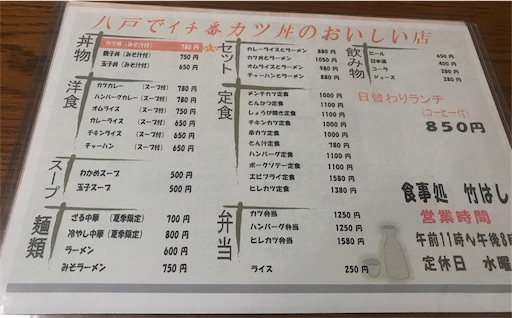 八戸でイチ番カツ丼のおいしい店
丼物
カツ丼（みそ汁付） 780円
親子丼（みそ汁付） 750円
玉子丼（みそ汁付） 650円
洋食
カツカレー （スープ付） 780円
ハンバーグカレー（スープ付） 780円
オムライス （スープ付） 750円
カレーライス （スープ付） 650円
チキンライス （スープ付） 650円
チャーハン （スープ付） 650円
スープ
わかめスープ 500円
玉子スープ 500円
麺類
ざる中華（夏季限定） 700円
冷やし中華（夏季限定） 800円
ラーメン 600円
みそラーメン 750円
セット
カレーライスとラーメン 880円
カツ丼とラーメン 1050円
オムライスとラーメン 980円
チャーハンとラーメン 880円
定食
メンチカツ定食 1000円
とんかつ定食 1000円
しょうが焼き定食 1000円
チキンカツ定食 1000円
串カツ定食 1000円
とん汁定食 780円
ハンバーグ定食 1000円
ポークソテー定食 1000円
エビフライ定食 1580円
ヒレカツ定食 1380円
弁当
カツ弁当 1250円
ハンバーグ弁当 1250円
ヒレカツ弁当 1580円
ライス 250円
飲み物
ビール 650円
日本酒 400円
コーラ 280円
ジュース 280円
日替わりランチ
（コーヒー付）
850円
食事処 竹はし
営業時間
午前11時～午後8時
定休日 水曜